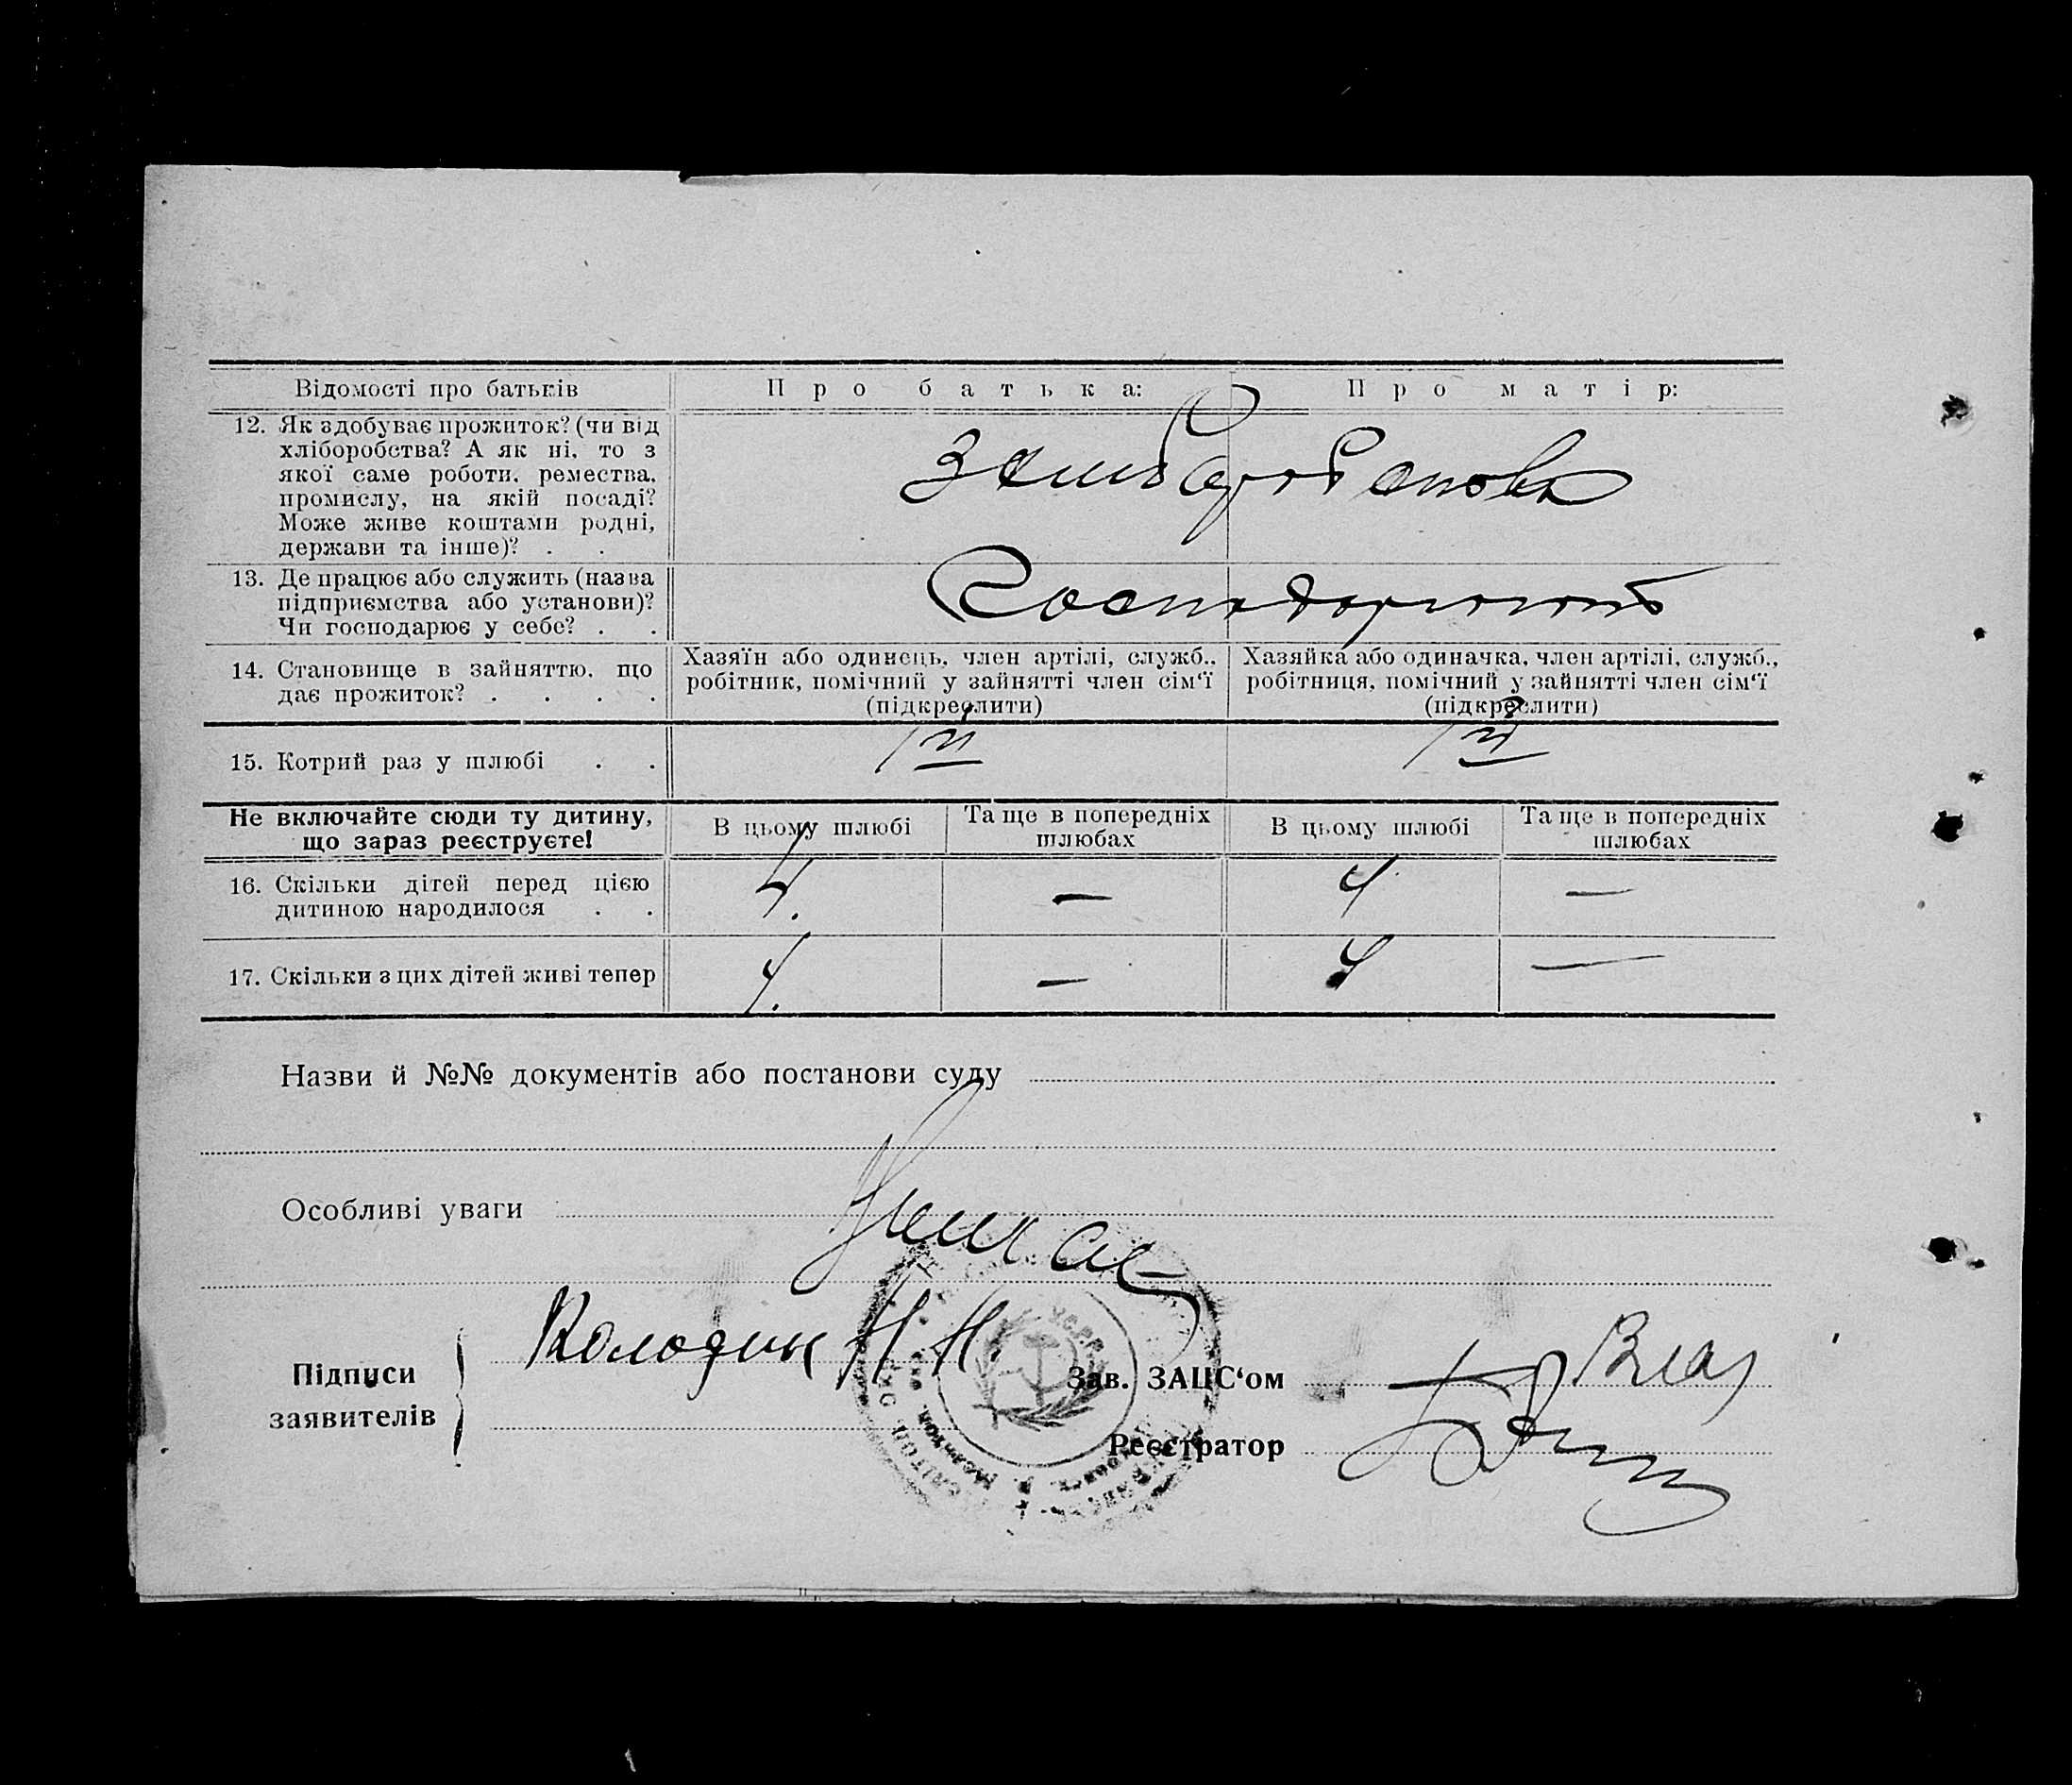 Відомості про батьків
Про батька:
Про матір:
12. Як здобуває прожиток? (чи від
хліборобства? А як ні, то з
якої саме роботи, ремества,
промислу, на якій посаді?
Може живе коштами родні,
держави та інше)? . .
13. Де працює або служить (назва
підприємства або установи)?
Чи господарює у себе? . .
14. Становище в зайняттю, що
дає прожиток? . . . .
Хазяїн або одинець, член артілі, служб.,
робітник, помічний у зайнятті член сім‘ї
(підкреслити)
Хазяйка або одиначка, член артілі, служб.,
робітниця, помічний у зайнятті член сім‘ї
(підкреслити)
15. Котрий раз у шлюбі . .
1й
1й
Не включайте сюди ту дитину,
що зараз реєструєте!
В цьому шлюбі
Та ще в попередніх
шлюбах
В цьому шлюбі
Та ще в попередніх
шлюбах
16. Скільки дітей перед цією
дитиною народилося . .
4.
—
4
—
17. Скільки з цих дітей живі тепер
4.
—
4
—
Назви й №№ документів або постанови суду
Особливі уваги
Немає
Підписи
заявителів
Колодин Н. Н.
У.С.Р.Р.
Зав. ЗАЦС‘ом
Реєстратор